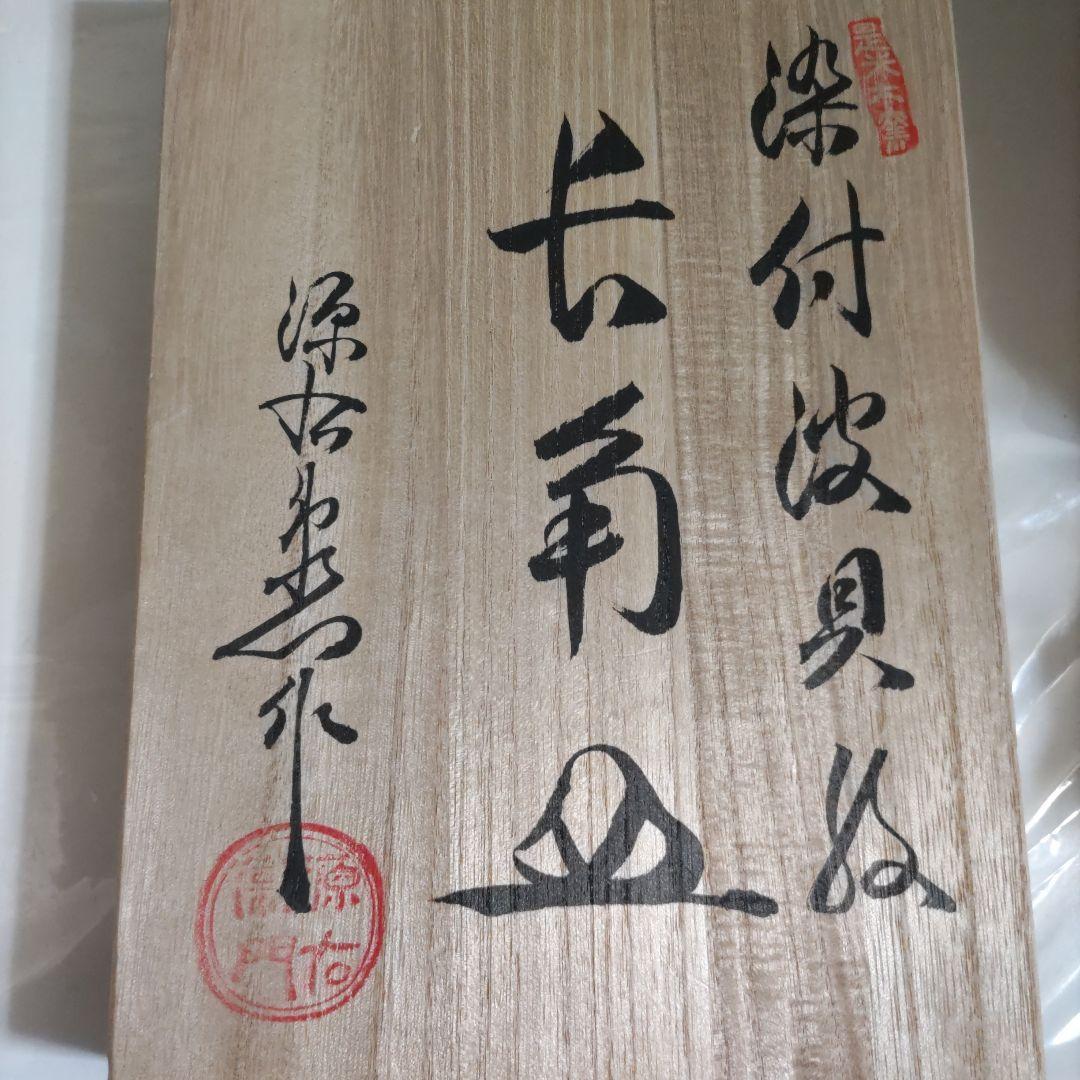 染付波貝紋
長角皿
源右衛門作
源右
衛門